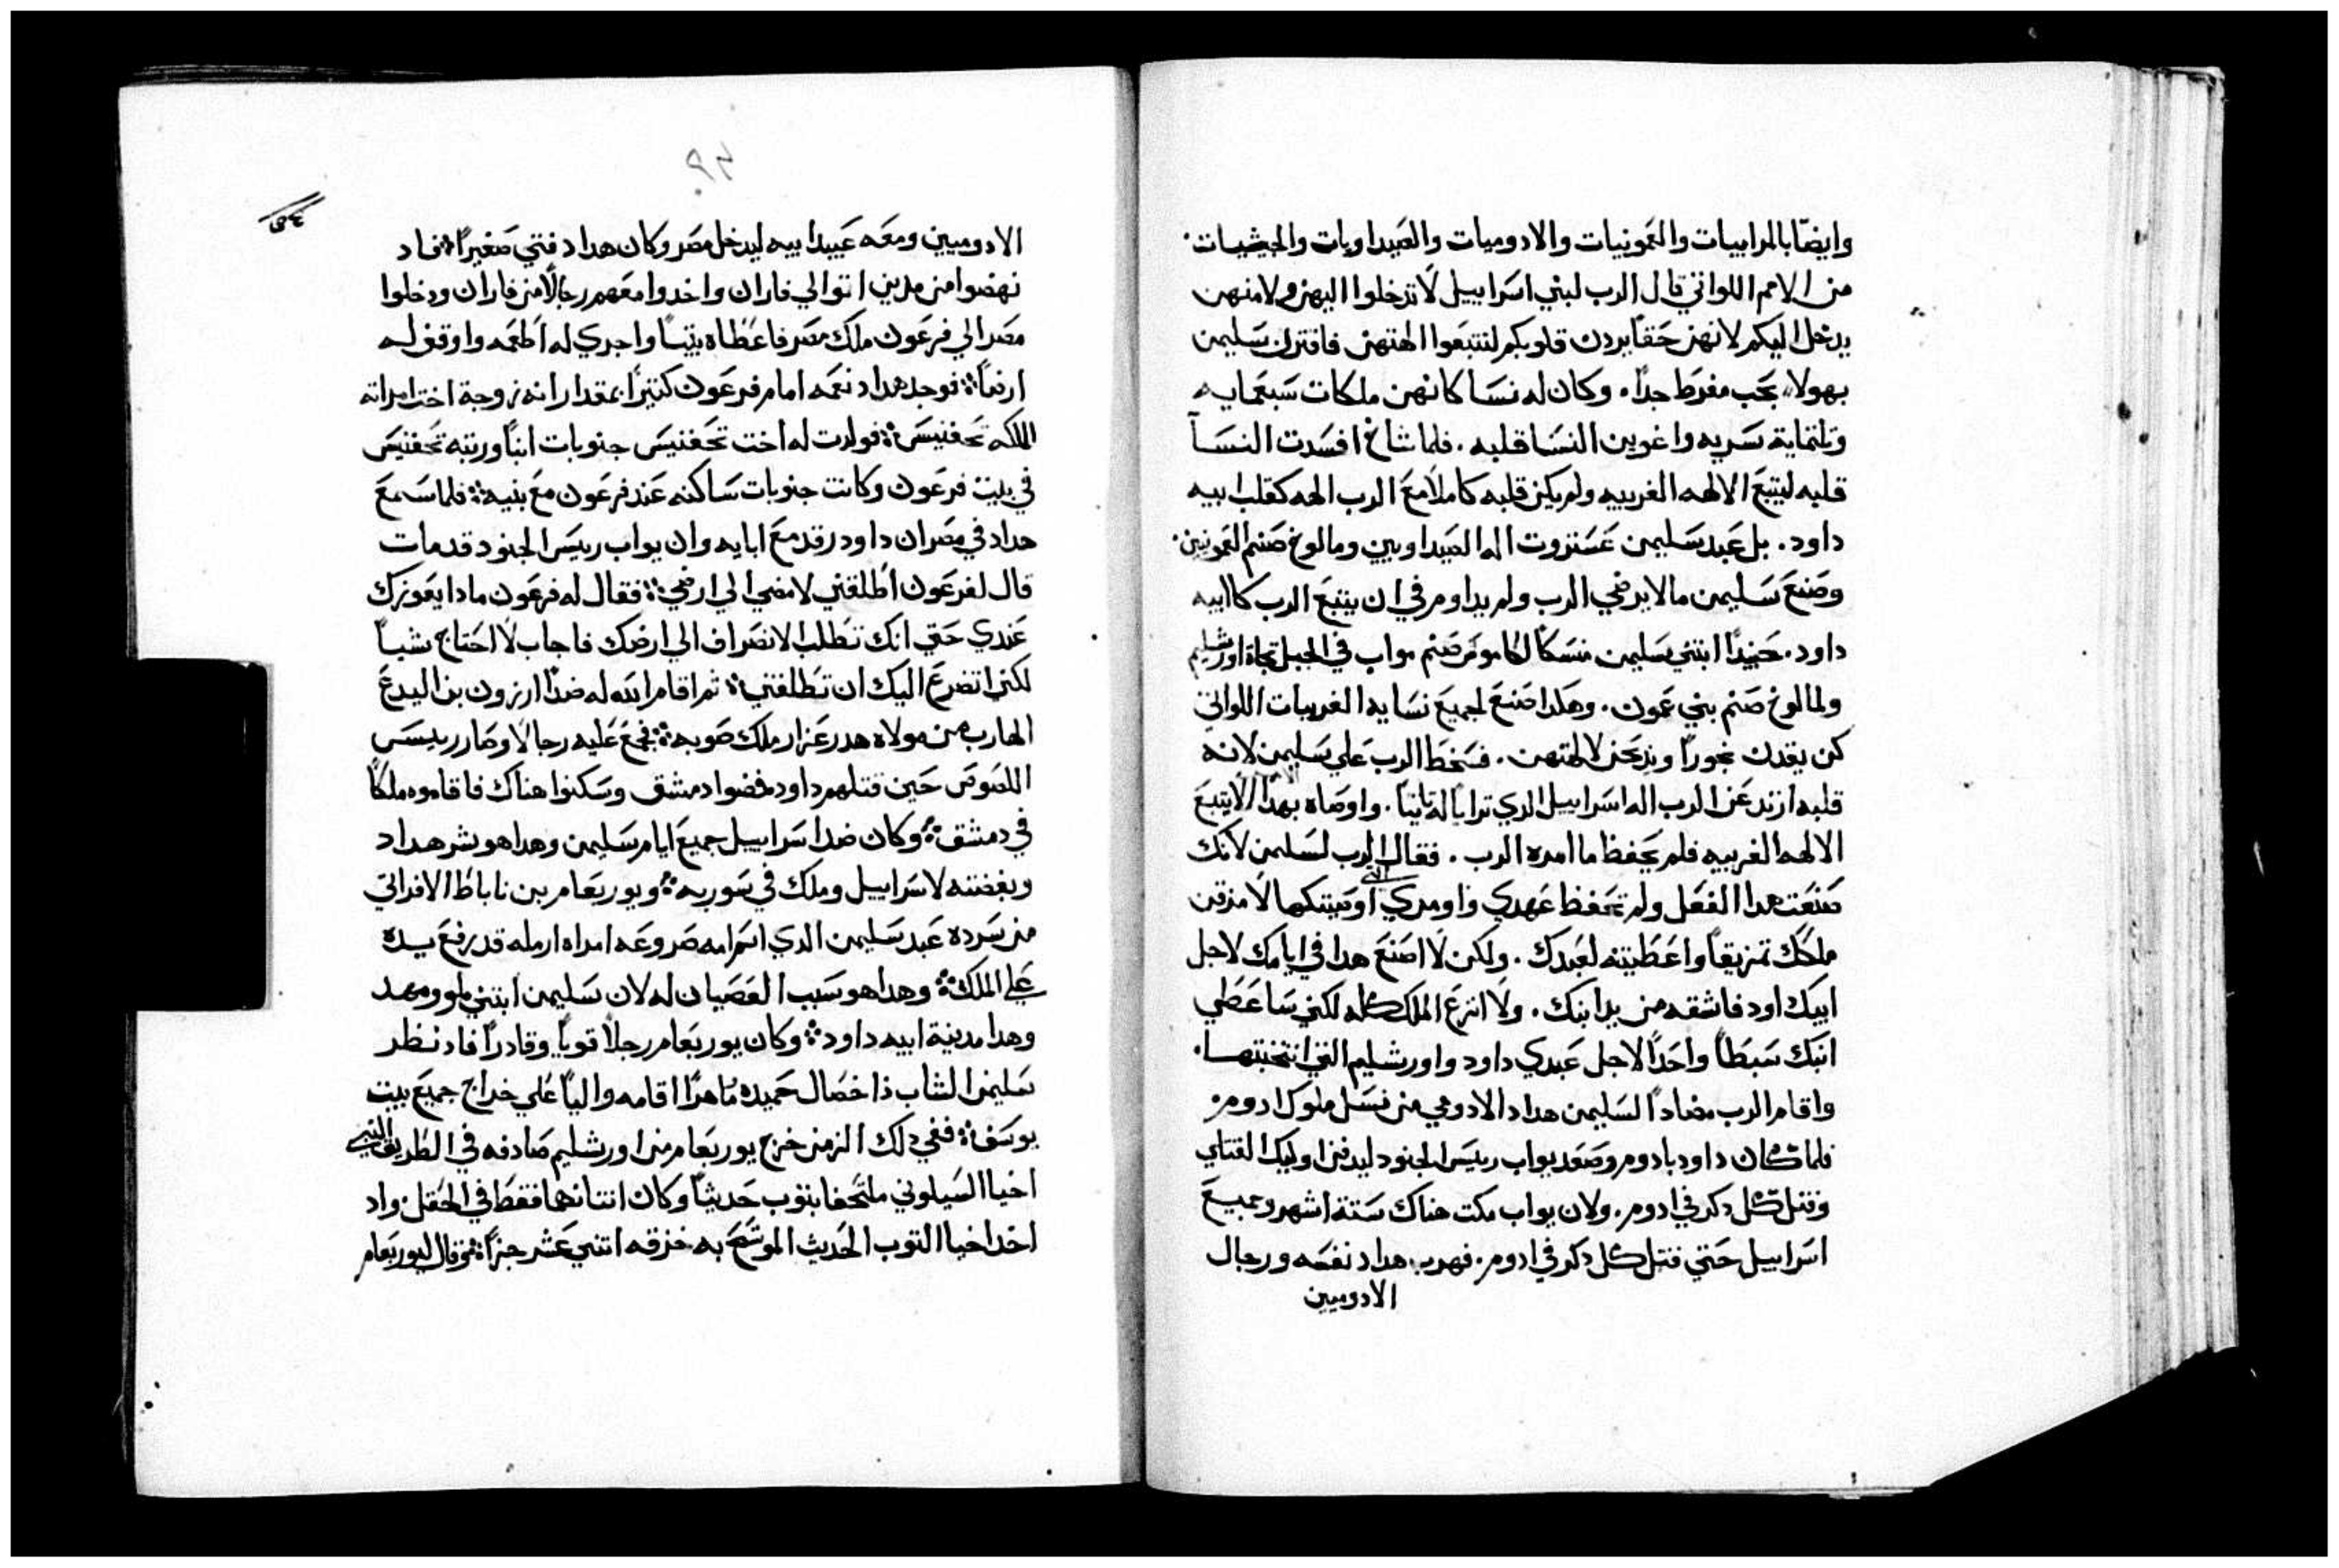 وايضًا بالمرابيات والعمونيات والادوميات والصيداويات والحيثيات.
من الامم اللواتي قال الرب لبني اسراييل لا تدخلوا اليهن ولا منهن
يدخل اليكم لانهن حقاً يردن قلوبكم لتتبعوا الهتهن فاقترن سليمن
بهولاء بحب مفرط جداً. وكان له نسا كانهن ملكات سبعمايه
وتلتماية سريه واغوين النسا قلبه. فلما شاخ افسدت النسآ
قلبه ليتبع الالهه الغريبه ولم يكن قلبه كاملاً مع الرب الهه كقلب ابيه
داود. بل عبد سليمن عستروت اله الصيداويين ومالوخ صنم العمونيين.
وصنع سليمن ما لا يرضي الرب ولم يداوم في ان يتبع الرب كاابيه
داود. حنيداً ابتني سليمن منسكاً لكاموش صنم مواب في الجبل تجاه اورشليم
ولمالوخ صنم بني عمون. وهكدا صنع لجميع نسايه الغريبات اللواتي
كن يقدن بخوراً ويدبحن لالهتهن. فسخط الرب علي سليمن لانه
قلبه ارتد عن الرب اله اسراييل الدي ترايا له تانياً. واوصاه بهدا الامر الا يتبع
الالهه الغريبه فلم يحفظ ما امره الرب. فقال الرب لسليمن لانك
صنعت هدا الفعل ولم تحفظ عهدي واومري التي اوصيتك بها لامزقن
ملكك تمزيقاً واعطيته لعبدك. ولكن لا اصنع هدا في ايامك لاجل
ابيك داود فاشقه من يد ابنك. ولا انزع الملك كله لكني ساعطي
ابنك سبطاً واحداً لاجل عبدي داود واورشليم التي انتخبتها.
واقام الرب مضاداً لسليمن هداد الادومي من نسل ملوك ادوم.
فلما كان داود بادوم وصعد يواب رييس الجنود ليدفن اوليك القتلي
وقتل كل دكر في ادوم. ولان يواب مكت هناك ستة اشهر وجميع
اسراييل حتي قتل كل دكر في ادوم. فهرب هداد نفسه ورجال
الادوميين
٩٣
الادوميين ومعه عبيد ابيه ليدخل مصر وكان هداد فتي صغيراً فاد
نهضوا من مدين اتوا الي فاران واخدوا معهم رجالاً من فاران ودخلوا
مصر الي فرعون ملك مصر فاعطاه بيتاً واجري له اطعمه واوقف له
ارضاً فوجد هداد نعمه امام فرعون كتيراً بمقدار انه زوجة اخت امراته
الملكه تحفنيس فولدت له اخت تحفنيس جنوبات ابناً وربته تحفنيس
في بيت فرعون وكانت جنوبات ساكنه عند فرعون مع بنيه فلما سمع
هداد في مصر ان داود رقد مع ابايه وان يواب رييس الجنود قد مات
قال لفرعون اطلقني لامضي الي ارضي فقال له فرعون مادا يعوزك
عندي حتي انك تطلب الانصراف الي ارضك فاجاب لا احتاج شياً
لكني اتضرع اليك ان تطلقني تم اقام الله له ضداً ارزون بن اليدع
الهارب من مولاه هدرعزار ملك صوبه فجمع عليه رجالا وصار رييس
اللصوص حين قتلهم داود فمضوا دمشق وسكنوا هناك فاقاموه ملكاً
في دمشق وكان ضد اسراييل جميع ايام سليمن وهدا هو شر هداد
وبغضته لاسراييل وملك في سوريه ويوربعام بن ناباط الافراتي
من سرده عبد سليمن الدي اسم امه صروعه امراه ارمله قد رفع يده
علي الملك وهدا هو سبب العصيان له لان سليمن ابتني ملو ومهد
وهدا مدينة ابيه داود وكان يوربعام رجلاً قوياً وقادراً فاد نظر
سليمن الشاب ذا خصال حميده ماهراً اقامه والياً علي خراج جميع بيت
يوسف ففي دلك الزمن خرج يوربعام من اورشليم صادفه في الطريق النبي
اخيا السيلوني ملتحفا بتوب حديثاً وكان انتانهما فقط في الحقل واد
اخد اخيا التوب الحديث الموشح به خزقه اتني عشر جزاً تم قال ليوربعام